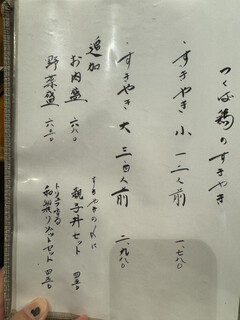 つくば鶏のすきやき
・すきやき 小 一、二人前 一、七八〇
・すきやき 大 三、四人前 二、九八〇
追加
お肉盛 六八〇
野菜盛 六三〇
すきやきの〆に
親子丼セット 四五〇
リゾットセット 四五〇